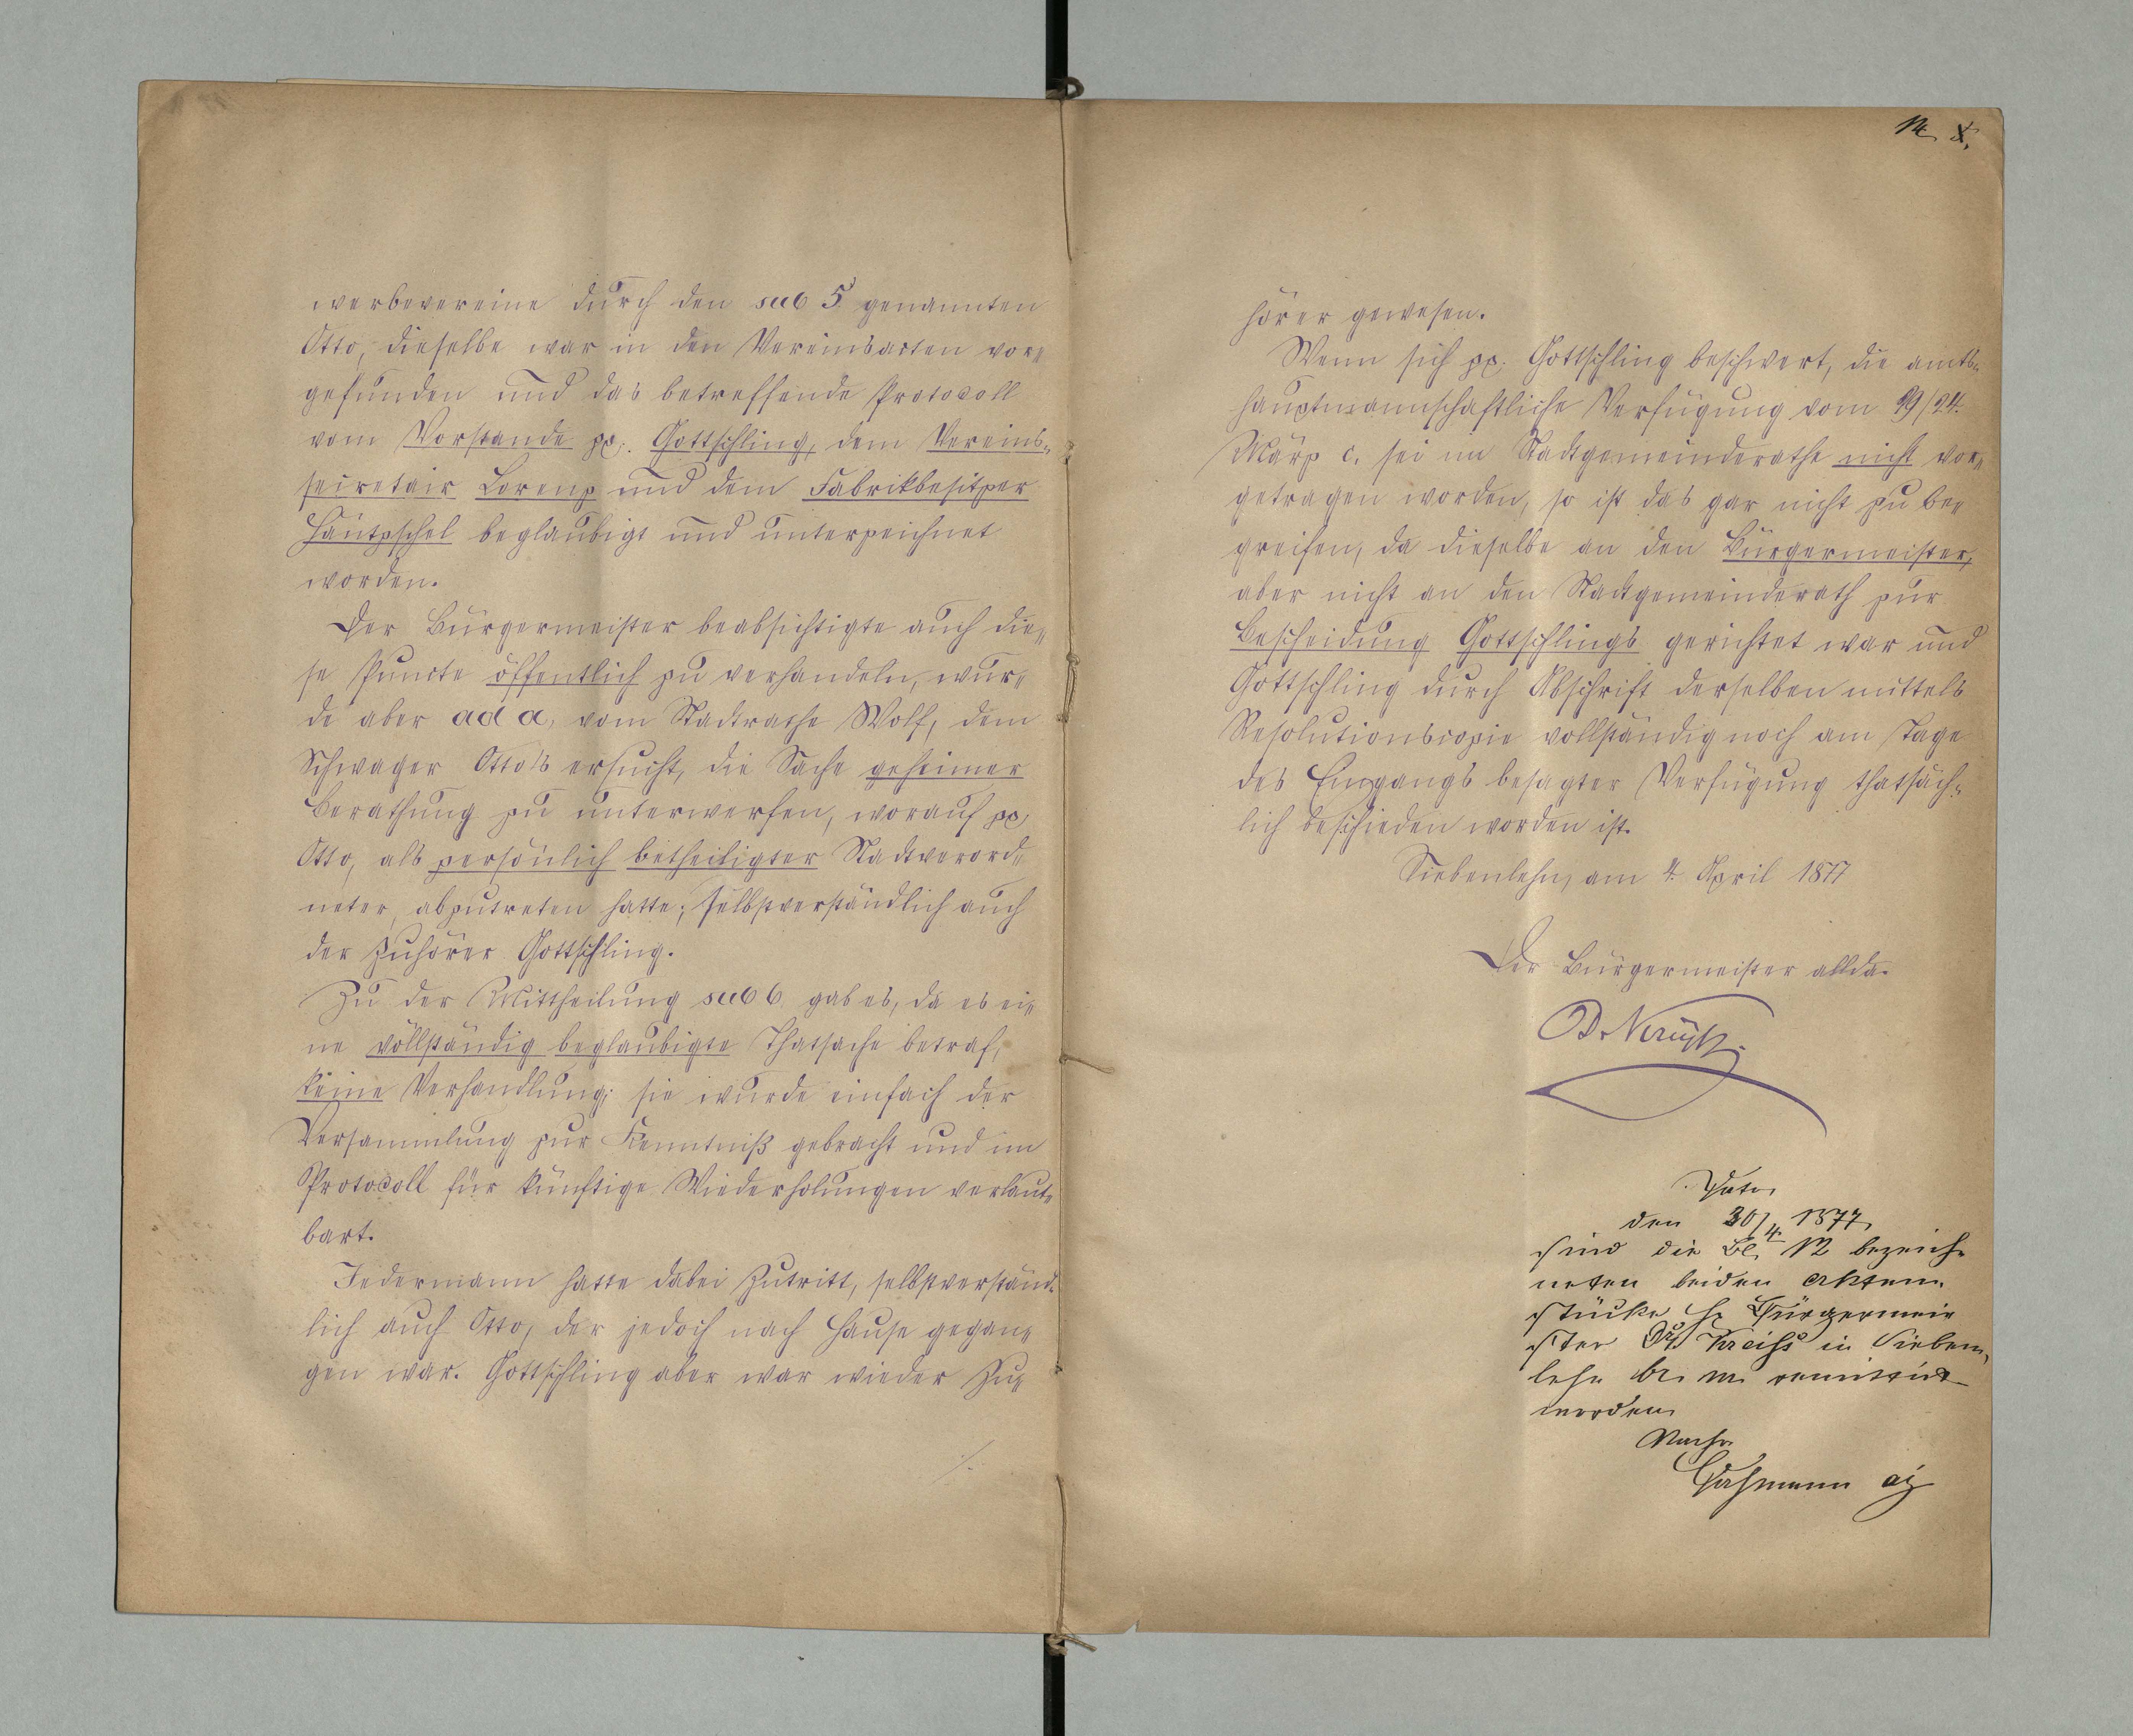 werbevereine durch den sub 5 genannten
Otto, dieselbe war in den Vereinsacten vor„
gefunden und das betreffende Protocoll
vom Vorstande pp. Gottschling, dem Vereins„
secretair Lorenz und dem Fabrikbesitzer
Häntzschel beglaubigt und unterzeichnet
worden.
Der Bürgermeister beabsichtigte auch die„
se Puncte öffentlich zu verhandeln, wur„
de aber ad a, vom Stadtrathe Wolf, dem
Schwager Otto's ersucht, die Sache geheimer
Berathung zu unterwerfen, worauf pp
Otto, als persönlich betheiligter Stadtverord„
neter, abzutreten hatte; selbstverständlich auch
der Zuhörer Gottschling.
Zu der Mittheilung sub 6 gab es, da es ei„
ne vollständig beglaubigte Thatsache betraf,
keine Verhandlung; sie wurde einfach der
Versammlung zur Kenntniß gebracht und im
Protocoll für künftige Wiederholungen verlaut„
bart.
Jedermann hatte dabei Zutritt, selbstverständ„
lich auch Otto, der jedoch nach Hause gegan„
gen war. Gottschling aber war wieder Zu„
./.
14
hörer gewesen.
Wenn sich pp. Gottschling beschwert, die amts„
hauptmannschaftliche Verfügung vom 19/24.
März c. sei im Stadtgemeinderathe nicht vor„
getragen worden, so ist das gar nicht zu be„
greifen, da dieselbe an den Bürgermeister,
aber nicht an den Stadtgemeinderath zur
Bescheidung Gottschlings gerichtet war und
Gottschling durch Abschrift derselben mittels
Resolutionscopie vollständig noch am Tage
des Eingangs besagter Verfügung thatsäch„
lich beschieden worden ist.
Siebenlehn, am 4. April 1877
Der Bürgermeister allda.
den 30/4 1877
sind die Bl. 12 bezeich
neten beiden Akten
stücke H Bürgermei
ster in Sieben
lehn br. m. remittirt
worden
Nachr.